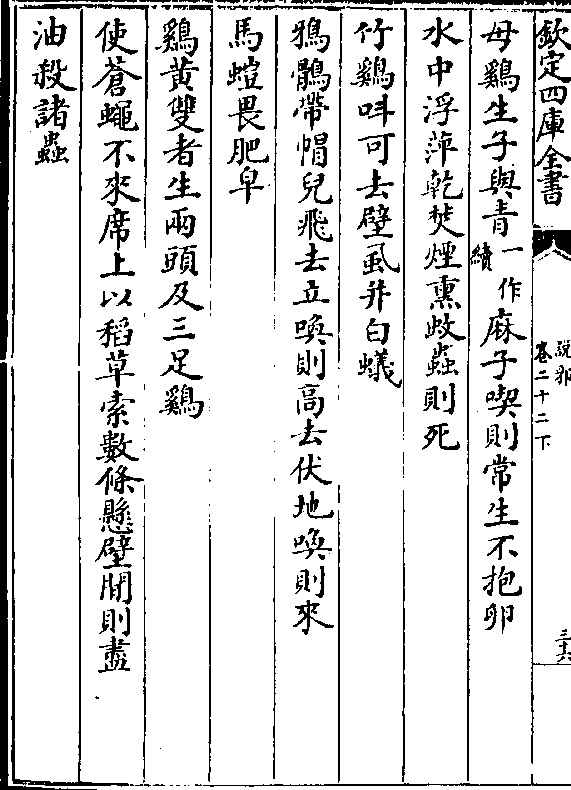 欽定四庫全書
說郛
卷二十二下
三十六
母鷄生子與青一作績麻子喫則常生不抱卵
水中浮萍乾焚煙熏蚊蟲則死
竹鷄呌可去壁虱并白蟻
鴉鶻帶帽兒飛去立喚則高去伏地喚則來
馬蝗畏肥皁
鷄黄雙者生兩頭及三足鷄
使蒼蠅不來席上以稻草索數條懸壁間則盡
油殺諸蟲